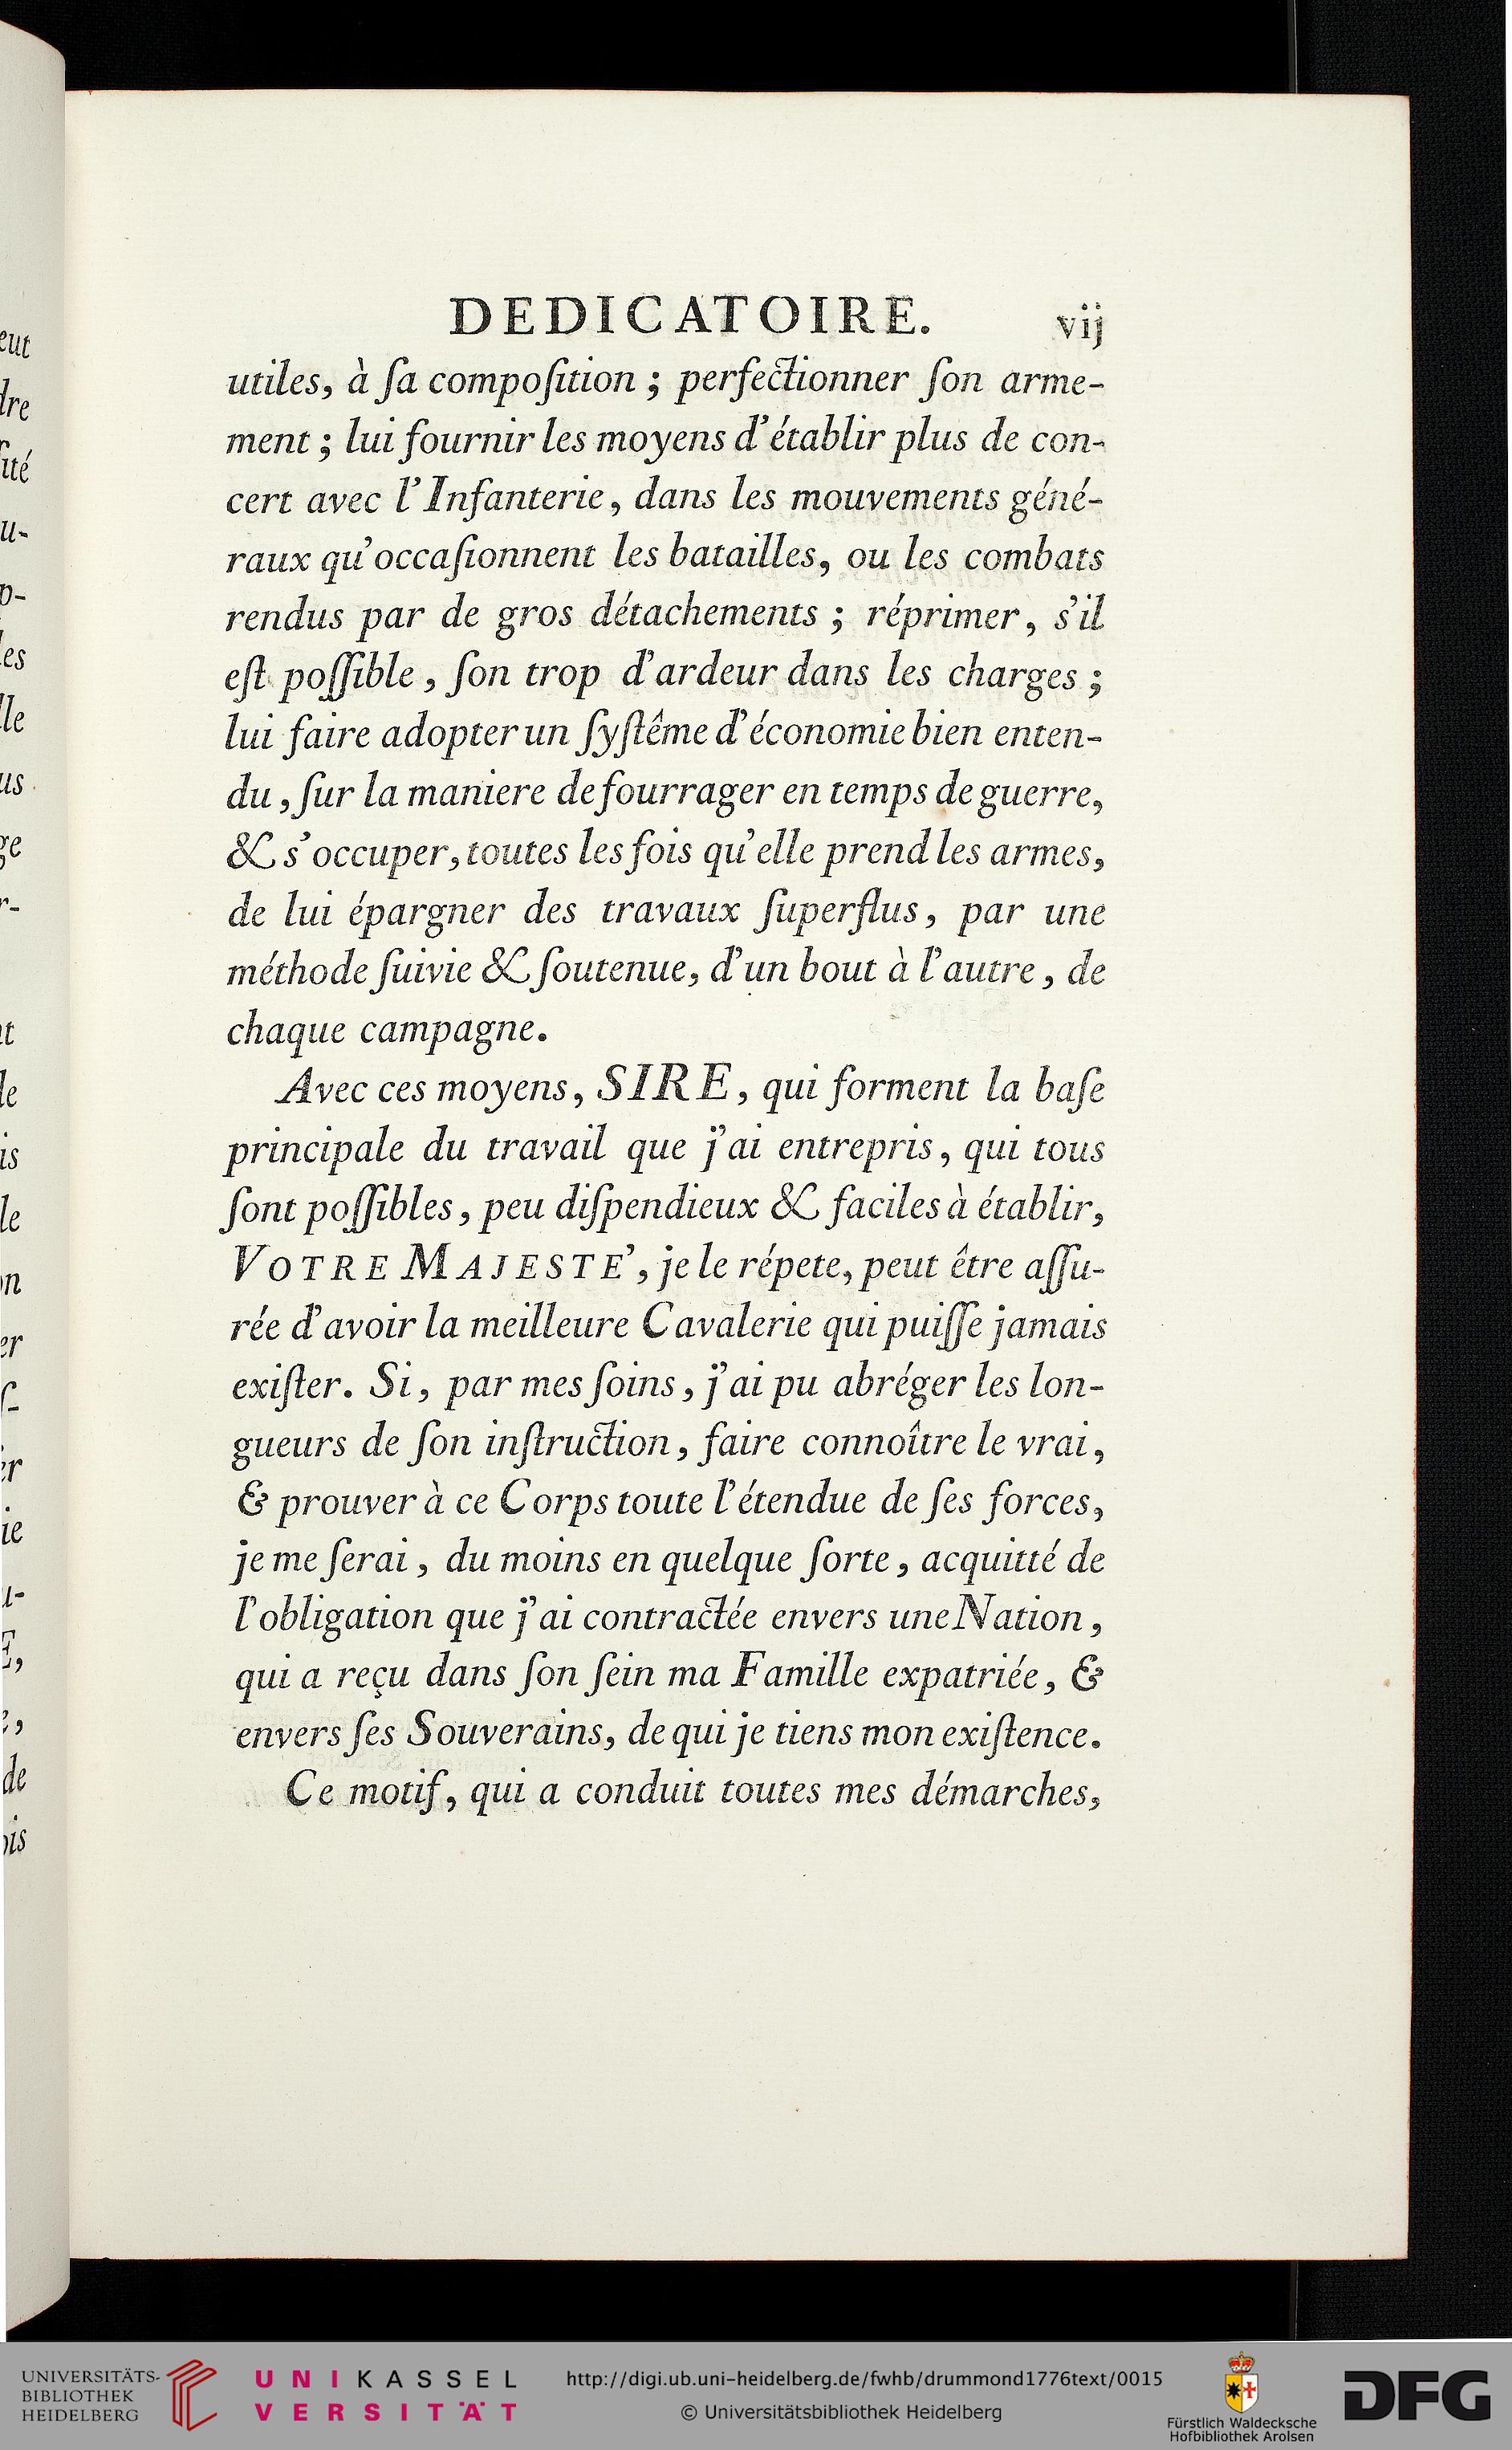 DEDICATOIRE. vij
utiles, à ſa compoſition ; perfectionner ſon arme-
ment ; lui fournir les moyens d'établir plus de con-
cert avec l'Infanterie, dans les mouvements géné-
raux qu'occaſionnent les batailles, ou les combats
rendus par de gros détachements ; réprimer, s'il
eſt poſſible, ſon trop d'ardeur dans les charges ;
lui faire adopter un ſyſtême d'économie bien enten-
du, ſur la maniere de fourrager en temps de guerre,
& s'occuper, toutes les fois qu'elle prend les armes,
de lui épargner des travaux ſuperflus, par une
méthode ſuivie & ſoutenue, d'un bout à l'autre, de
chaque campagne.
Avec ces moyens, SIRE, qui forment la baſe
principale du travail que j'ai entrepris, qui tous
ſont poſſibles, peu diſpendieux & faciles à établir,
VOTRE MAJESTE', je le répete, peut être aſſu-
rée d'avoir la meilleure Cavalerie qui puiſſe jamais
exiſter. Si, par mes ſoins, j'ai pu abréger les lon-
gueurs de ſon inſtruction, faire connoître le vrai,
& prouver à ce Corps toute l'étendue de ſes forces,
je me ſerai, du moins en quelque ſorte, acquitté de
l'obligation que j'ai contractée envers une Nation,
qui a reçu dans ſon ſein ma Famille expatriée, &
envers ſes Souverains, de qui je tiens mon exiſtence.
Ce motif, qui a conduit toutes mes démarches,
UNIVERSITÄTS-
BIBLIOTHEK
HEIDELBERG
UNIKASSEL
VERSITÄT
http://digi.ub.uni-heidelberg.de/fwhb/drummond1776text/0015
© Universitätsbibliothek Heidelberg
Fürstlich Waldecksche
Hofbibliothek Arolsen
DFG